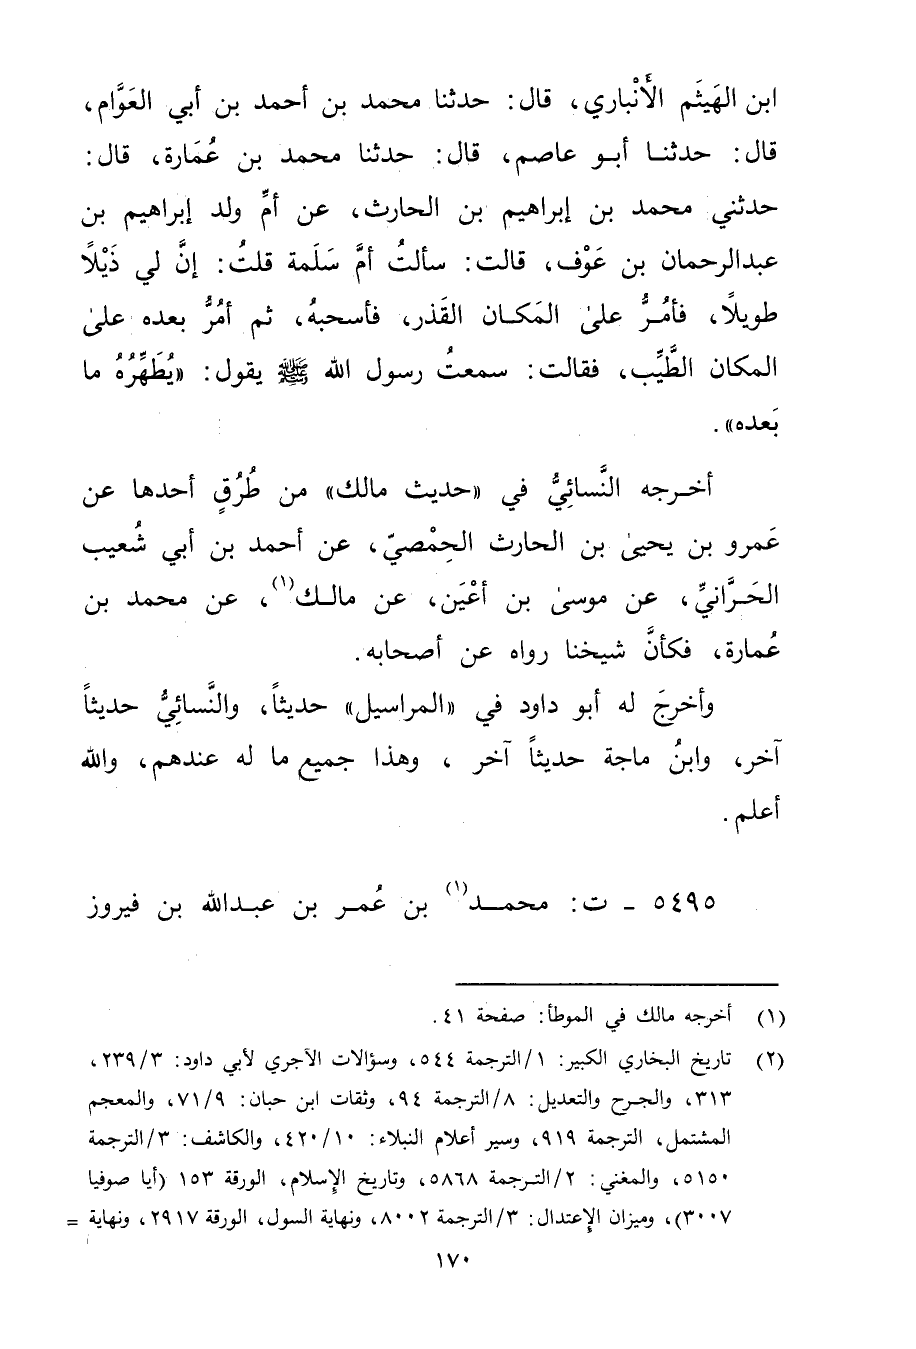 ابن الهَيثَم الأَنْباري، قال: حدثنا محمد بن أحمد بن أبي العَوَّام،
قال: حدثنا أبو عاصم، قال: حدثنا محمد بن عُمَارة، قال:
حدثني محمد بن إبراهيم بن الحارث، عن أمِّ ولد إبراهيم بن
عبدالرحمان بن عَوْف، قالت: سألتُ أمَّ سَلَمة قلتُ: إنَّ لي ذَيْلاً
طويلاً، فأمُرُّ علىٰ المَكان القَذر، فأسحبهُ، ثم أمُرُّ بعده علىٰ
المكان الطَّيِّب، فقالت: سمعتُ رسول الله ﷺ يقول: «يُطَهِّرُهُ ما
بَعده».
أخرجه النَّسائِيُّ في «حديث مالك» من طُرُقٍ أحدها عن
عَمرو بن يحيىٰ بن الحارث الحِمْصيّ، عن أحمد بن أبي شُعيب
الحَرَّانيِّ، عن موسىٰ بن أعْيَن، عن مالك(١)، عن محمد بن
عُمارة، فكأنَّ شيخنا رواه عن أصحابه.
وأخرجَ له أبو داود في «المراسيل» حديثاً، والنَّسائِيُّ حديثاً
آخر، وابنُ ماجة حديثاً آخر ، وهذا جميع ما له عندهم، والله
أعلم.
٥٤٩٥ - ت: محمد(١) بن عُمر بن عبدالله بن فيروز
(١) أخرجه مالك في الموطأ: صفحة ٤١.
(٢) تاريخ البخاري الكبير: ١/الترجمة ٥٤٤، وسؤالات الآجري لأبي داود: ٢٣٩/٣،
٣١٣، والجرح والتعديل: ٨/الترجمة ٩٤، وثقات ابن حبان: ٧١/٩، والمعجم
المشتمل، الترجمة ٩١٩، وسير أعلام النبلاء: ٤٢٠/١٠، والكاشف: ٣/الترجمة
٥١٥٠، والمغني: ٢/الترجمة ٥٨٦٨، وتاريخ الإسلام، الورقة ١٥٣ (أيا صوفيا
٣٠٠٧)، وميزان الإعتدال: ٣/الترجمة ٨٠٠٢، ونهاية السول، الورقة ٢٩١٧، ونهاية =
١٧٠